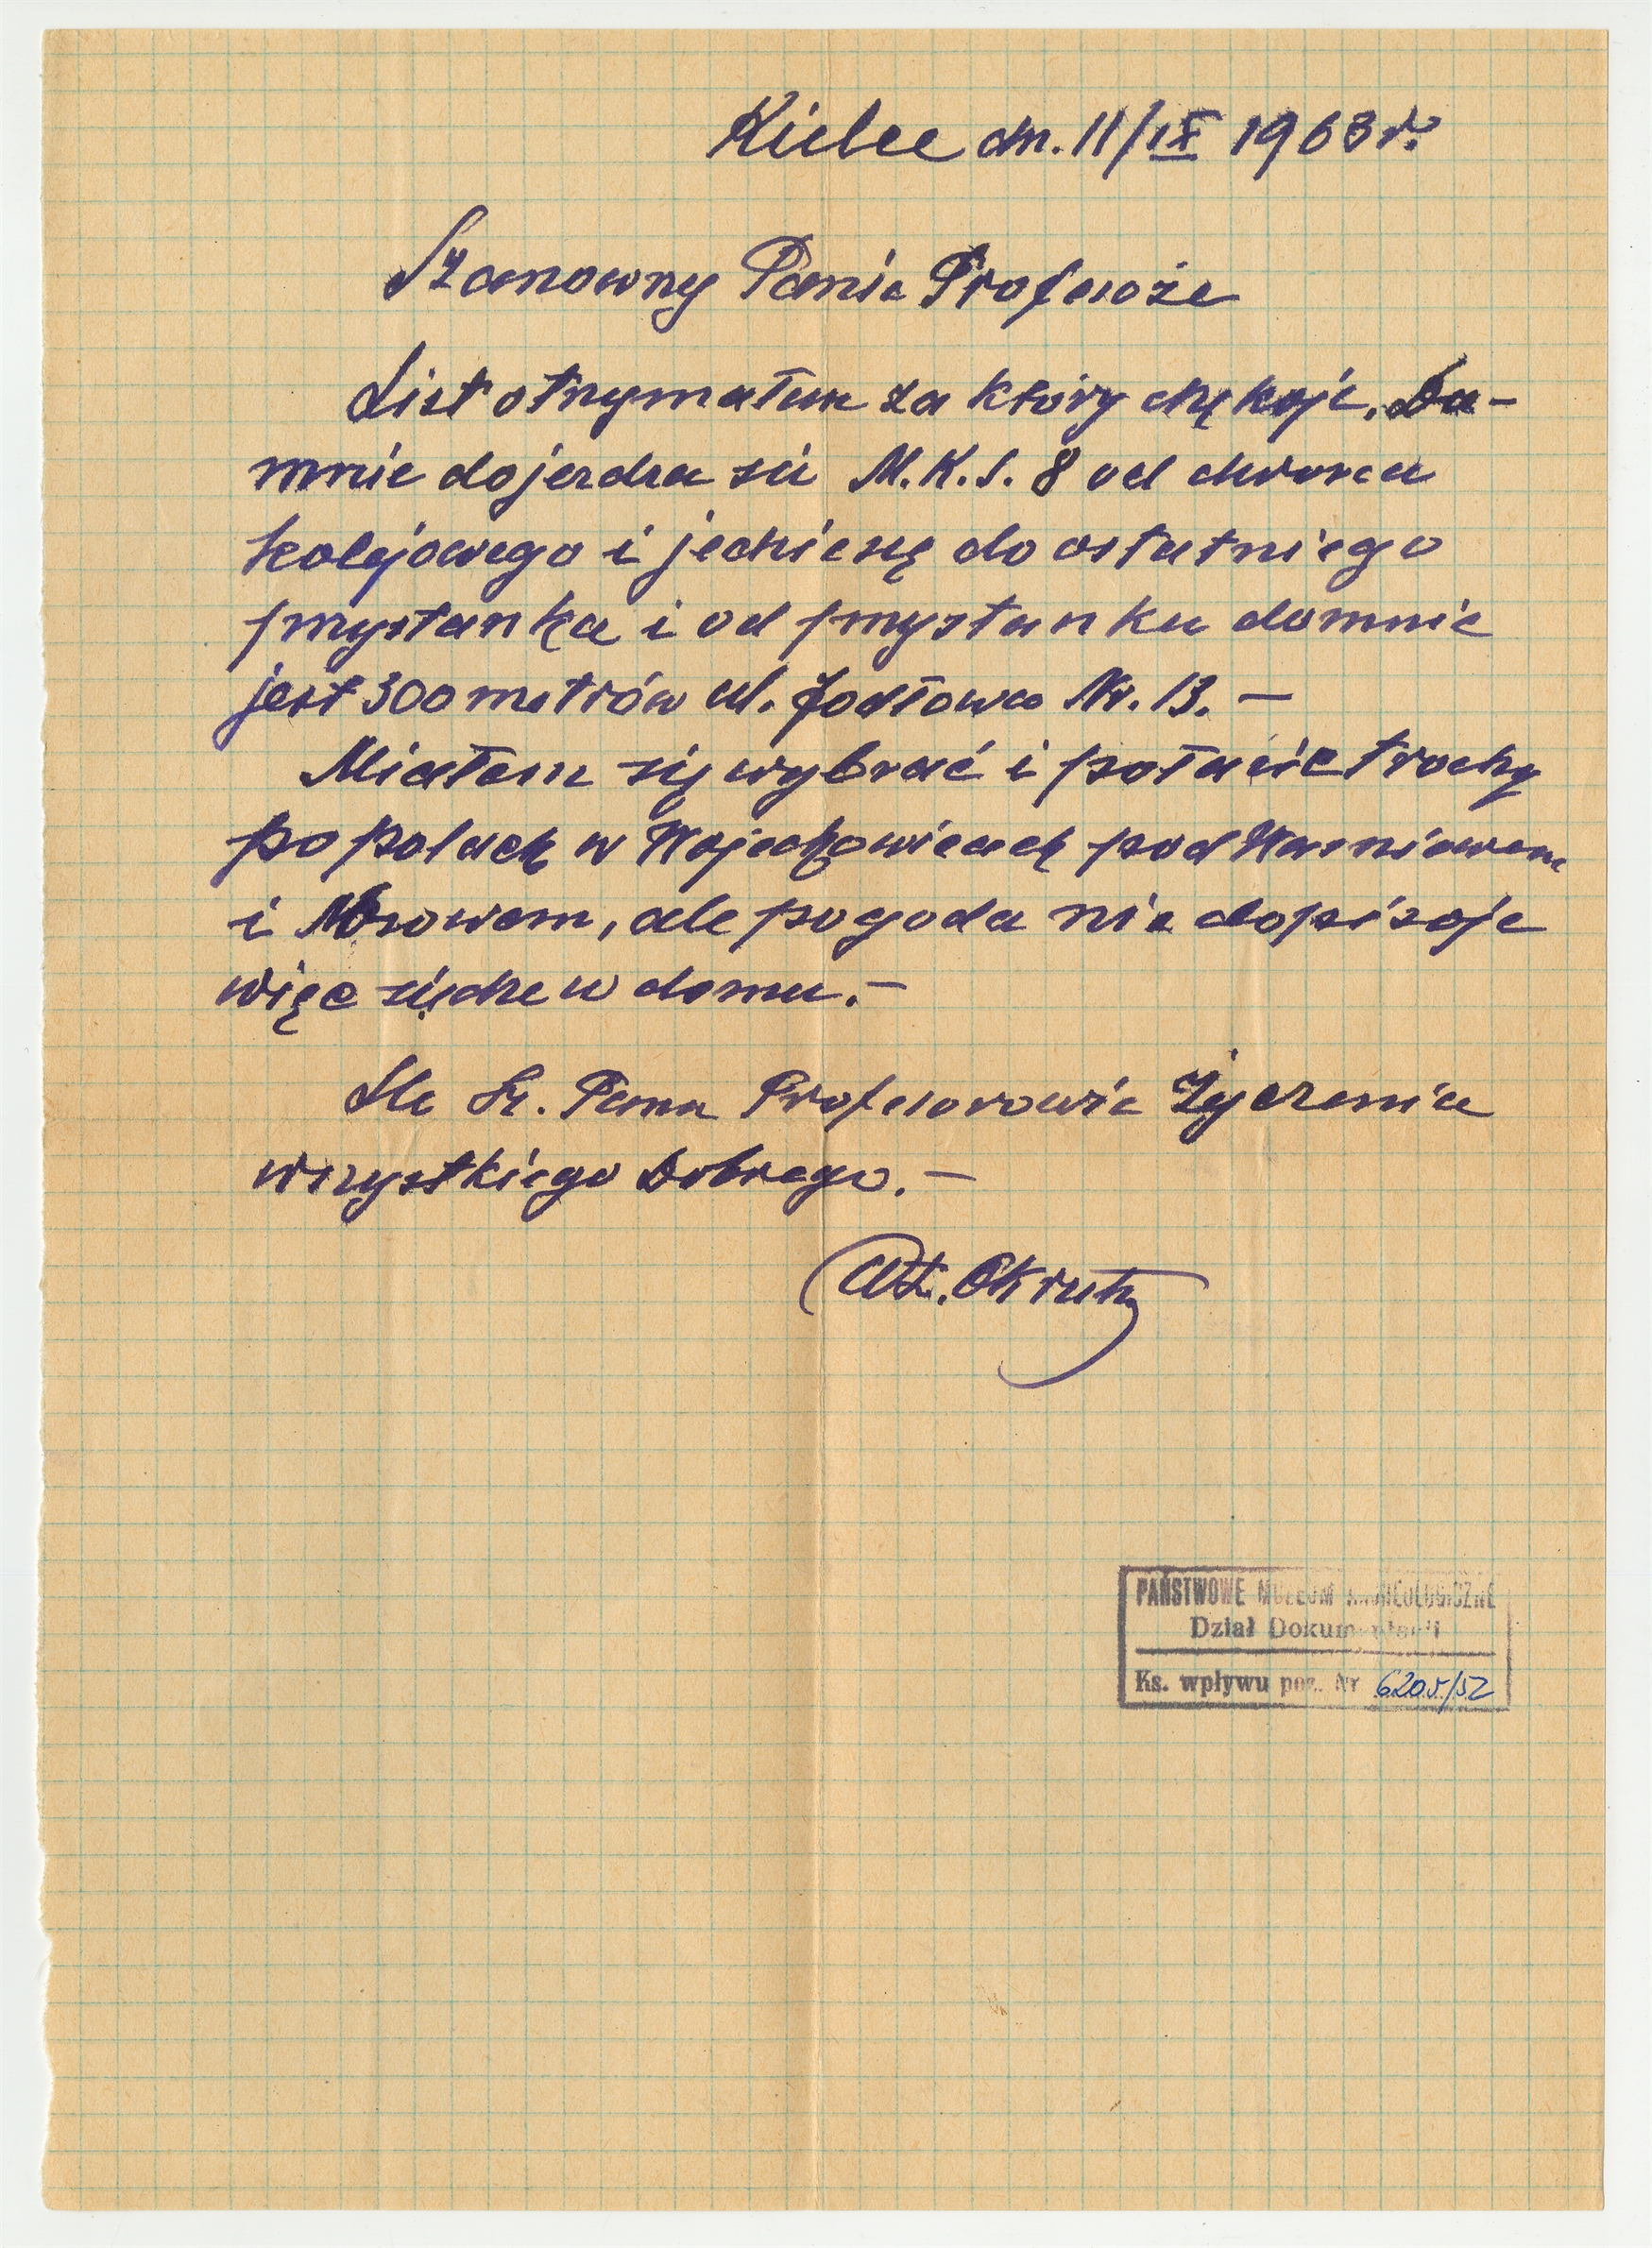 Kielce dn. 11/IX 1963 r.
Szanowny Panie Profesoże
List otrzymałem za który dziękoję. Do-
mnie dojerdza sie M.K.S. 8 od dworca
kolejowego i jedzie się do ostatniego
przystanka i od przystanku domnie
jest 300 metrów ul. Jodłowa Nr. 13. —
Miałem się wybrać i połazić trochę
po polach w Wojciechowicach pod Waśniowem
i , ale pogoda nie dopisoje
więc siędze w domu. —
Sle Sz. Panu Profesorowie Życzenia
wszystkiego Dobrego. —
Okruta
PAŃSTWOWE MUZEUM ARCHEOLOGICZNE
Dział Dokumentacji
Ks. wpływu poz. Nr 6205/52